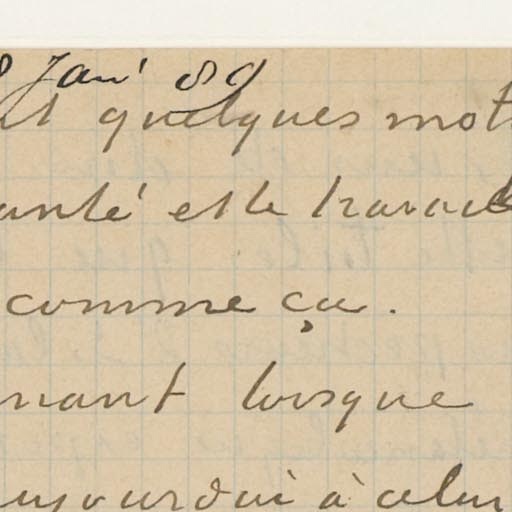 8 Janv 89
quelques mots
santé et le travail
comme ça.
nant lorsque
aujourdui à celui